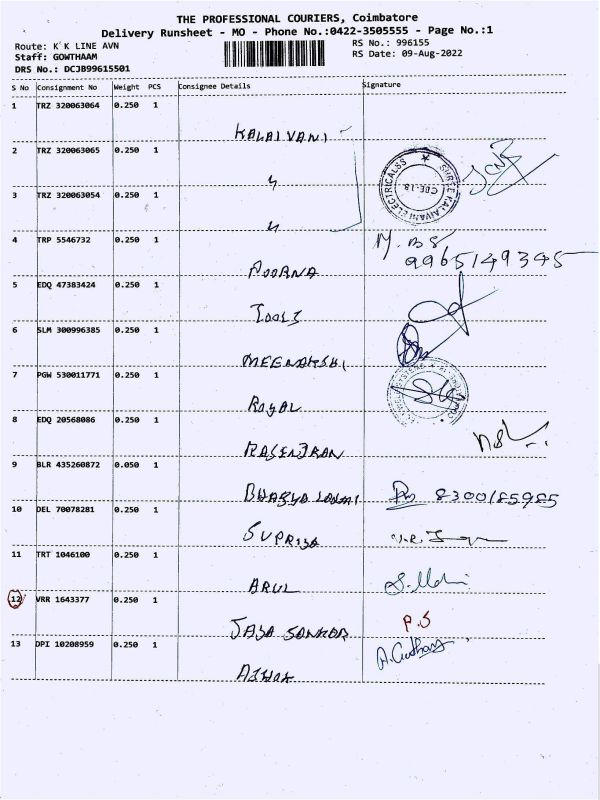 THE PROFESSIONAL COURIERS, Coimbatore
Delivery Runsheet - MO - Phone No.:0422-3505555 - Page No.:1
Route: K K LINE AVN
RS No.: 996155
Staff: GOWTHAAM
RS Date: 09-Aug-2022
DRS No.: DCJB99615501
S No Consignment No Weight PCS Consignee Details Signature
1 TRZ 320063064 0.250 1
KALAIVANI
2 TRZ 320063065 0.250 1
SHREE KALAIVANI ELECTRICALSS
CBE-18
3 TRZ 320063054 0.250 1
4 TRP 5546732 0.250 1
M. BS
9965149345
POORNA
5 EDQ 47383424 0.250 1
TOOLS
6 SLM 300996385 0.250 1
MEENAKSHI
7 PGW 530011771 0.250 1
ROYAL
8 EDQ 20568086 0.250 1
RAJENDRAN
9 BLR 435260872 0.050 1
8300185985
10 DEL 70078281 0.250 1
SUPRIYA
11 TRT 1046100 0.250 1
ARUL
12 VRR 1643377 0.250 1
P.S
JAYA SANKAR
13 DPI 10208959 0.250 1
ASHOK